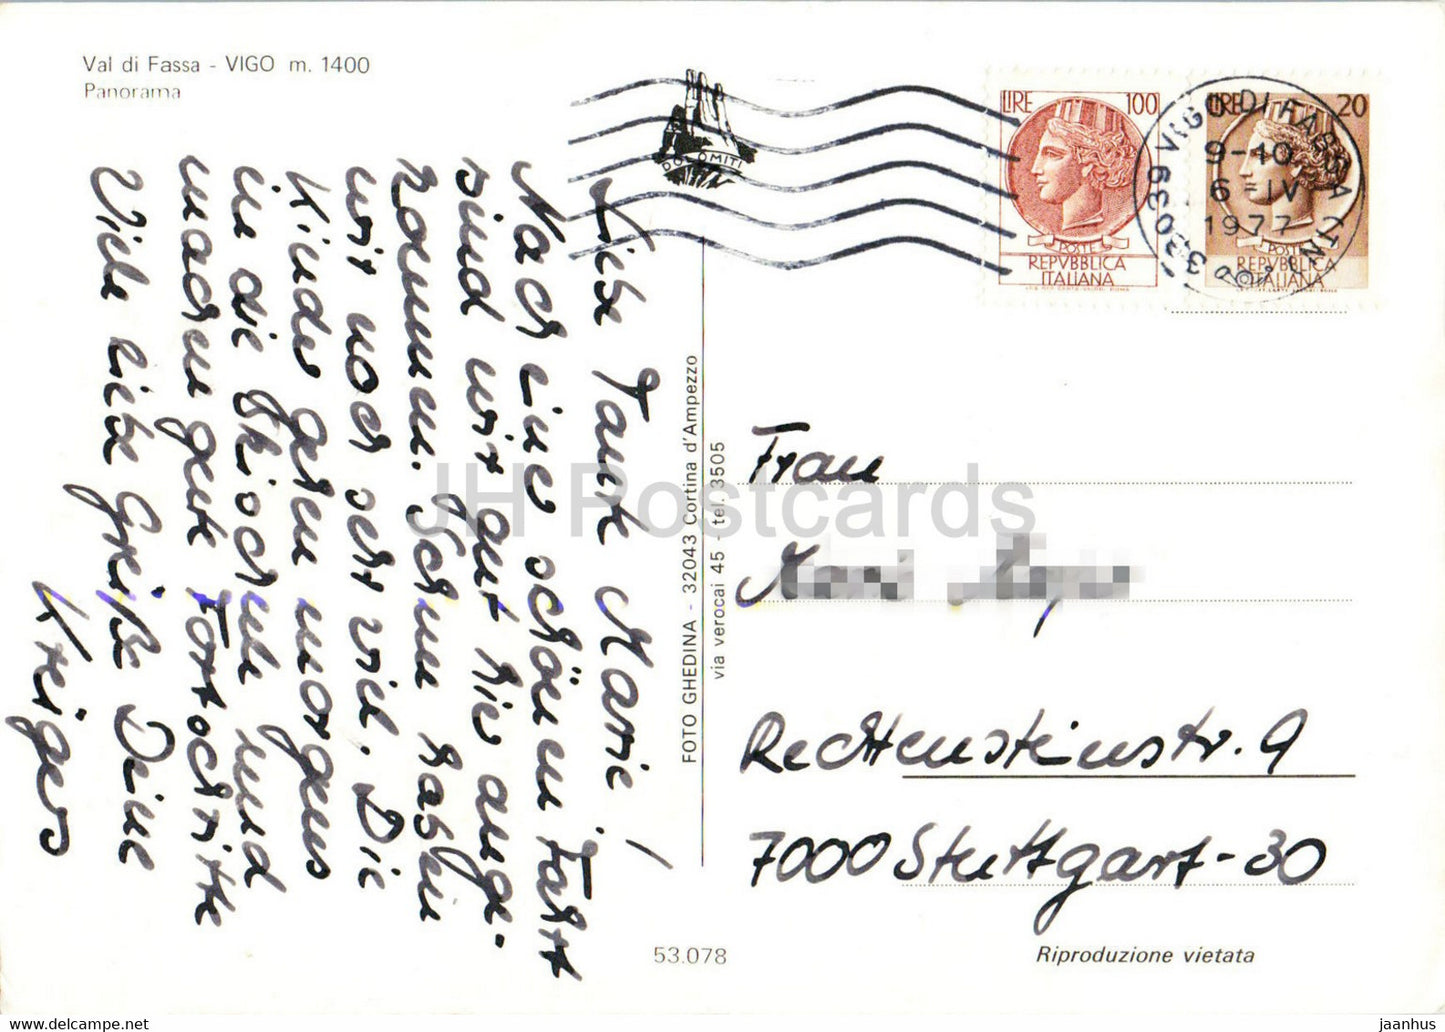 Val di Fassa - VIGO m. 1400
Panorama
DOLOMITI
LIRE 100
POSTE
REPVBBLICA
ITALIANA
LIRE 20
POSTE
REPVBBLICA
ITALIANA
38039 VIGO DI FASSA (TN)
9-10
6-IV
1977
Liebe Tante Marie!
Nach einer schönen Fahrt
sind wir gut hier ange-
kommen. Schnee haben
wir noch sehr viel. Die
Kinder gehen morgens
in die Skischule und
machen gute Fortschritte
Viele liebe Grüße Deine
Kreigers
FOTO GHEDINA - 32043 Cortina d'Ampezzo
via verocai 45 - tel. 3505
JH Postcards
Frau
Rechtensteinstr. 9
7000 Stuttgart-30
53.078
Riproduzione vietata
jaanhus.com